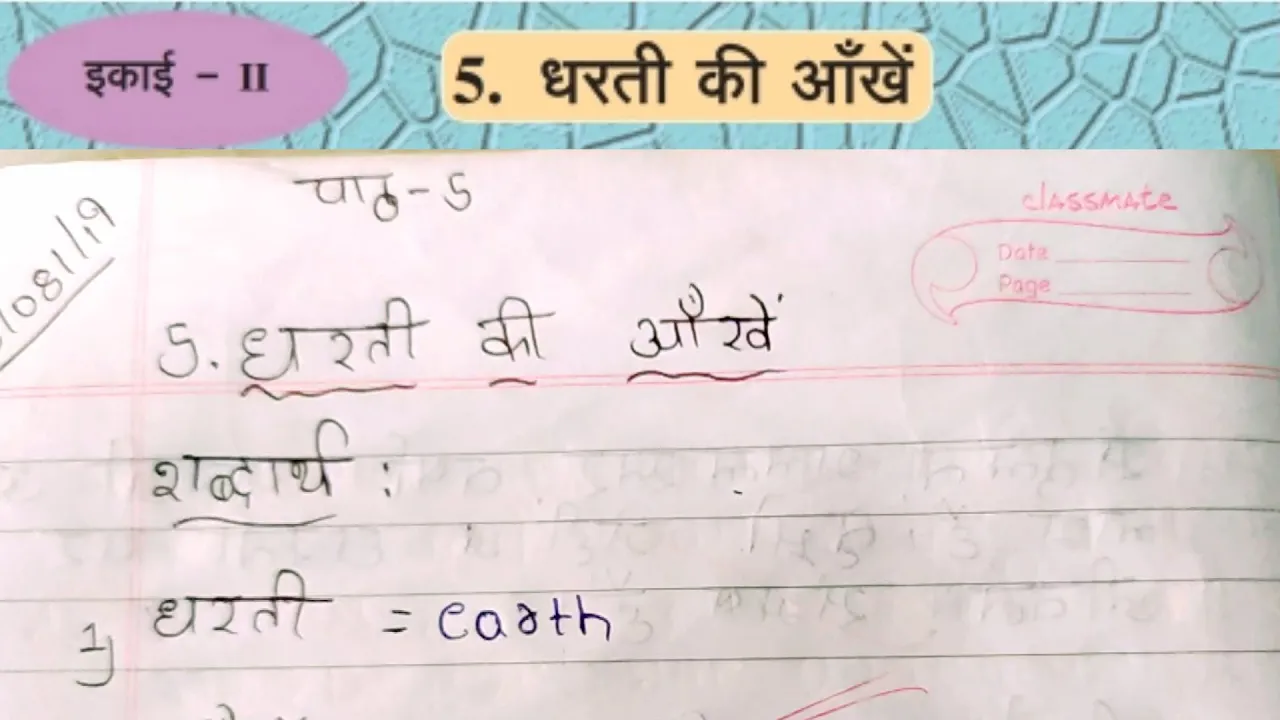 इकाई - II
5. धरती की आँखें
पाठ - 5
classmate
Date
Page
/08/19
5. धरती की आँखें
शब्दार्थ :
1) धरती = earth